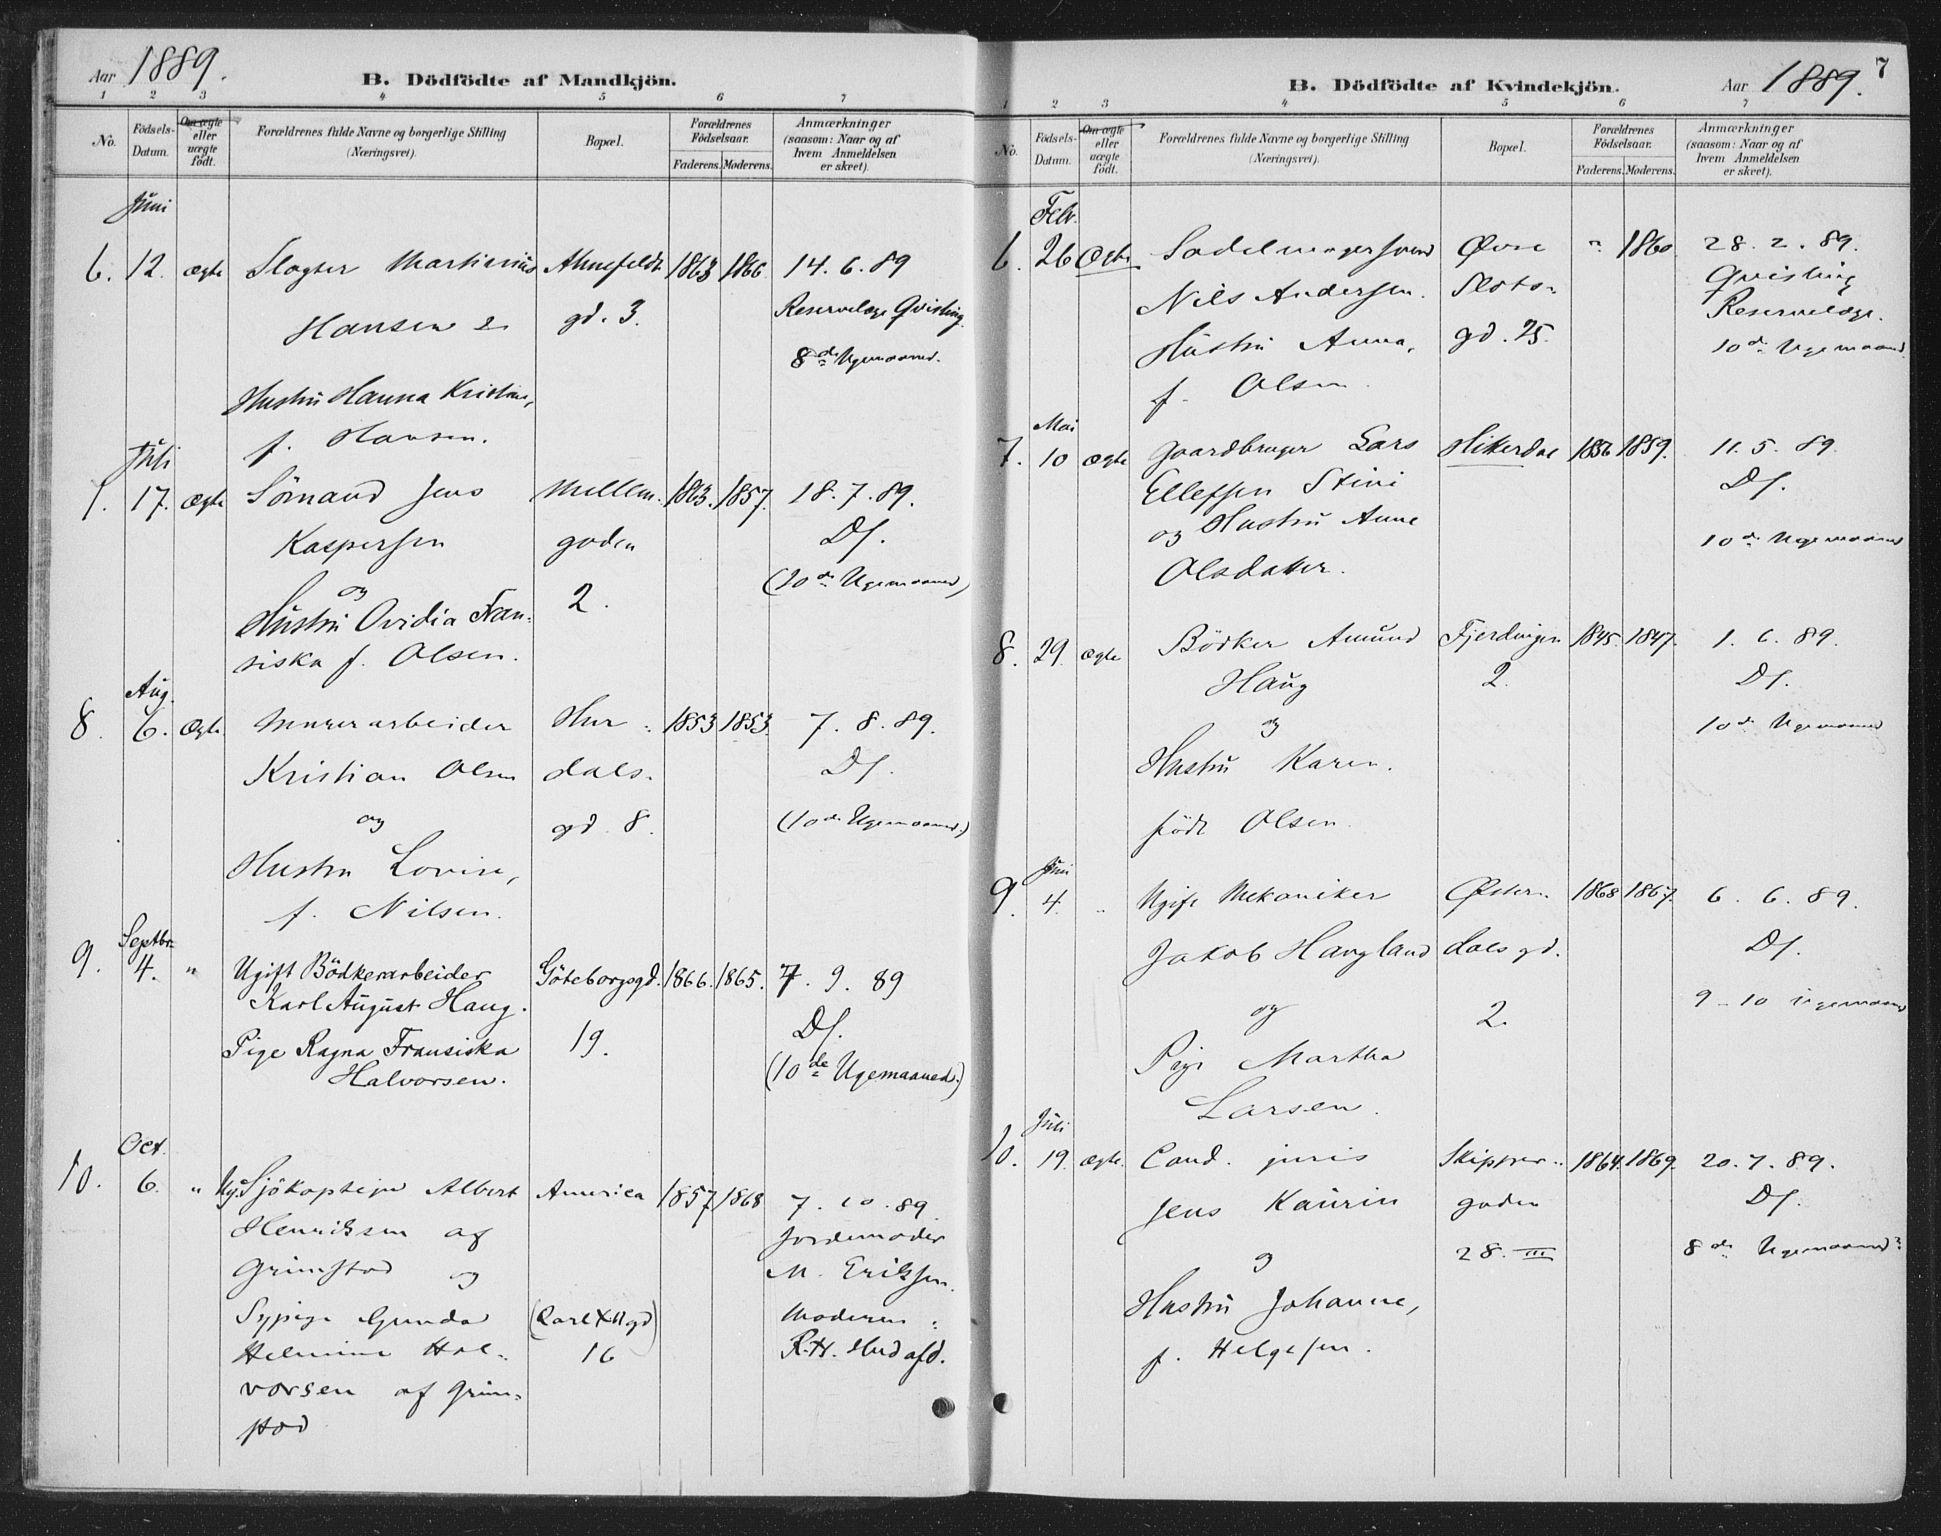 Aar 1889.
B. Dödfödte af Mandkjön.
1 2 3 4 5 6 7
No.
Födsels-Datum.
Om ægte eller uægte födt.
Forældrenes fulde Navne og borgerlige Stilling
(Næringsvei).
Bopæl.
Forældrenes Födselsaar.
Faderens. Moderens.
Anmærkninger
(saasom: Naar og af
hvem Anmeldelsen
er skeet).
Juni
6. 12. ægte Slagter Martinius Ahnefeldt 1863 1866. 14. 6. 89
Hansen & gd. 3. Reservelæge Qvisling.
8de Ugemaaned.
Hustru Hanna Kristine,
f. Hansen.
Juli
17. ægte Sömand Jens Mellem- 1863. 1857. 18. 7. 89.
Kaspersen gaden Ds.
og 2. (10de Ugemaaned)
Hustru Ovidia Fran-
siska f. Olsen.
Aug.
8. 6. ægte Murerarbeider Hur- 1853 1853. 7. 8. 89.
Kristian Olsen dals- Ds.
og gd. 8. (10de Ugemaaned.)
Hustru Lovise,
f. Nilsen.
Septbr.
9. 4. " Ugift Bödkerarbeider Göteborgsgd. 1866. 1865. 7. 9. 89
Karl August Haug. Ds.
Pige Ragna Fransiska 19. (10de Ugemaaned.)
Halvorsen.
Oct.
10. 6. " Ug. Sjökaptejn Albert America 1857 1868 7. 10. 89
Henriksen af Jordemoder
Grimstad og M. Eriksen.
Sypige Gunda (Carl XII gd) Moderen:
Helmine Hal- 16 R.H. Hudafd.
vorsen af Grim-
stad
7
B. Dödfödte af Kvindekjön.
Aar 1889.
1 2 3 4 5 6 7
No.
Födsels-Datum.
Om ægte eller uægte födt.
Forældrenes fulde Navne og borgerlige Stilling
(Næringsvei).
Bopæl.
Forældrenes Födselsaar.
Faderens. Moderens.
Anmærkninger
(saasom: Naar og af
hvem Anmeldelsen
er skeet).
Febr.
6. 26 Ægte Sadelmagersvend Øvre " 1860 28. 2. 89.
Nils Andersen. Slots- Qvisling
Hustru Anna, gd. 25. Reservelæge.
f. Olsen. 10de Ugemaaned
Mai
7. 10 ægte Gaardbruger Lars Hikerdal 1856 1859. 11. 5. 89.
Ellefsen Stini Ds.
og Hustru Anne 10de Ugemaaned
Olsdatter.
8. 29. ægte Bödker Amund Fjerdingen 1845. 1847. 1. 6. 89.
Haug 2. Ds.
og 10de Ugemaaned
Hustru Karen.
födt Olsen.
Juni
9. 4. " Ugift Mekaniker Øster- 1868 1867. 6. 6. 89.
Jakob Haugland dalsgd. Ds.
og 2. 9-10 Ugemaaned
Pige Martha
Larsen.
Juli
10. 19. ægte. Cand. juris Skipper- 1864. 1869. 20. 7. 89.
Jens Kaurin gaden Ds.
og 28. III 8de Ugemaaned?
Hustru Johanne,
f. Helgesen.